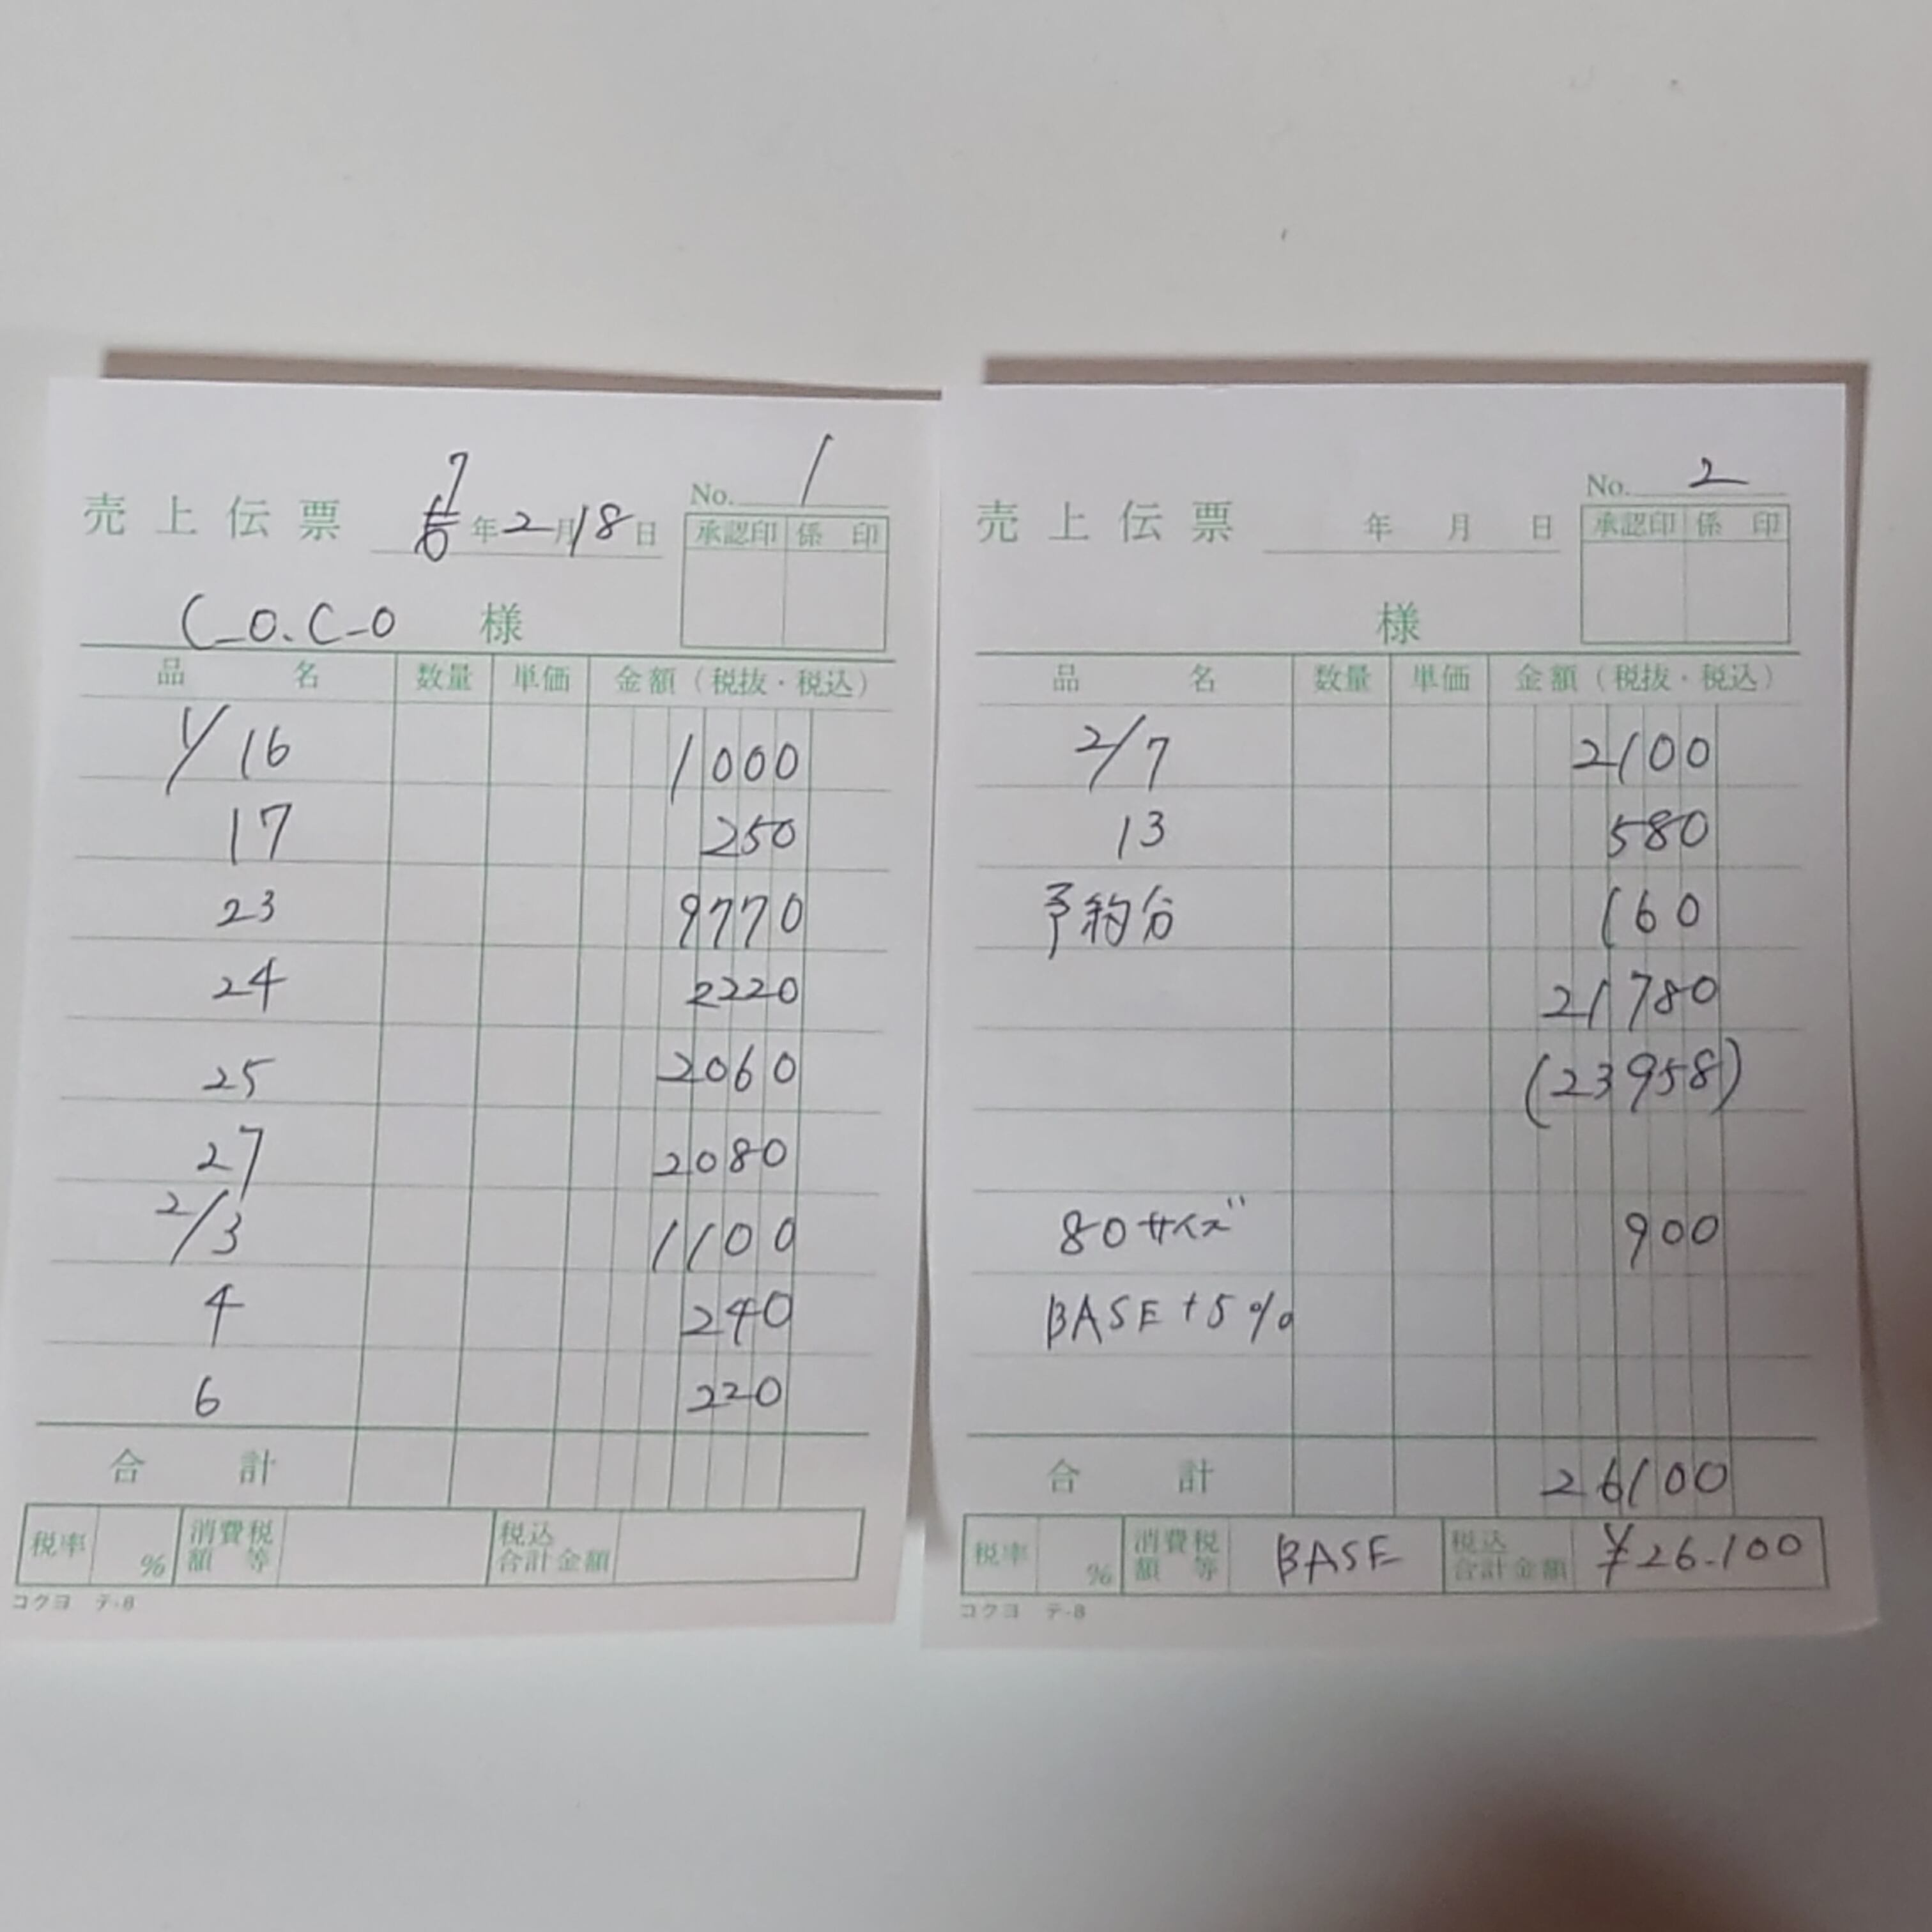 No. 1
売上伝票 7 6 年 2 月 18 日
承認印 係印
C_O.C_O 様
品名 数量 単価 金額（税抜・税込）
1/16 1000
17 250
23 9770
24 2220
25 2060
27 2080
2/3 1100
4 240
6 220
合計
税率 % 消費税額等 税込合計金額
コクヨ テ-8
No. 2
売上伝票 年 月 日
承認印 係印
様
品名 数量 単価 金額（税抜・税込）
2/7 2100
13 580
予約分 160
21780
(23958)
80サイズ 900
BASE+5%
合計 26100
税率 % 消費税額等 BASE 税込合計金額 ¥26.100
コクヨ テ-8